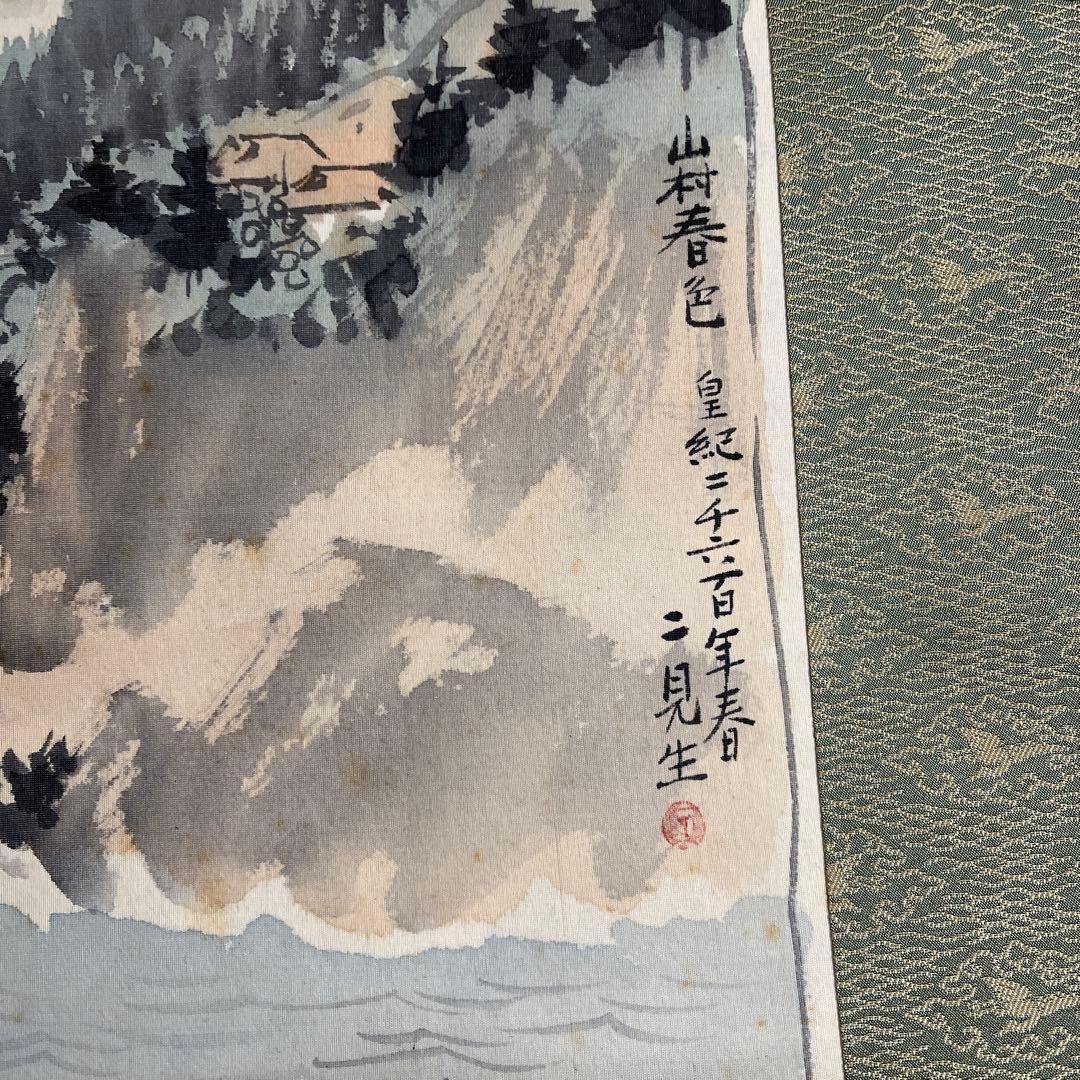 山村春色 皇紀二千六百年春日
二見生